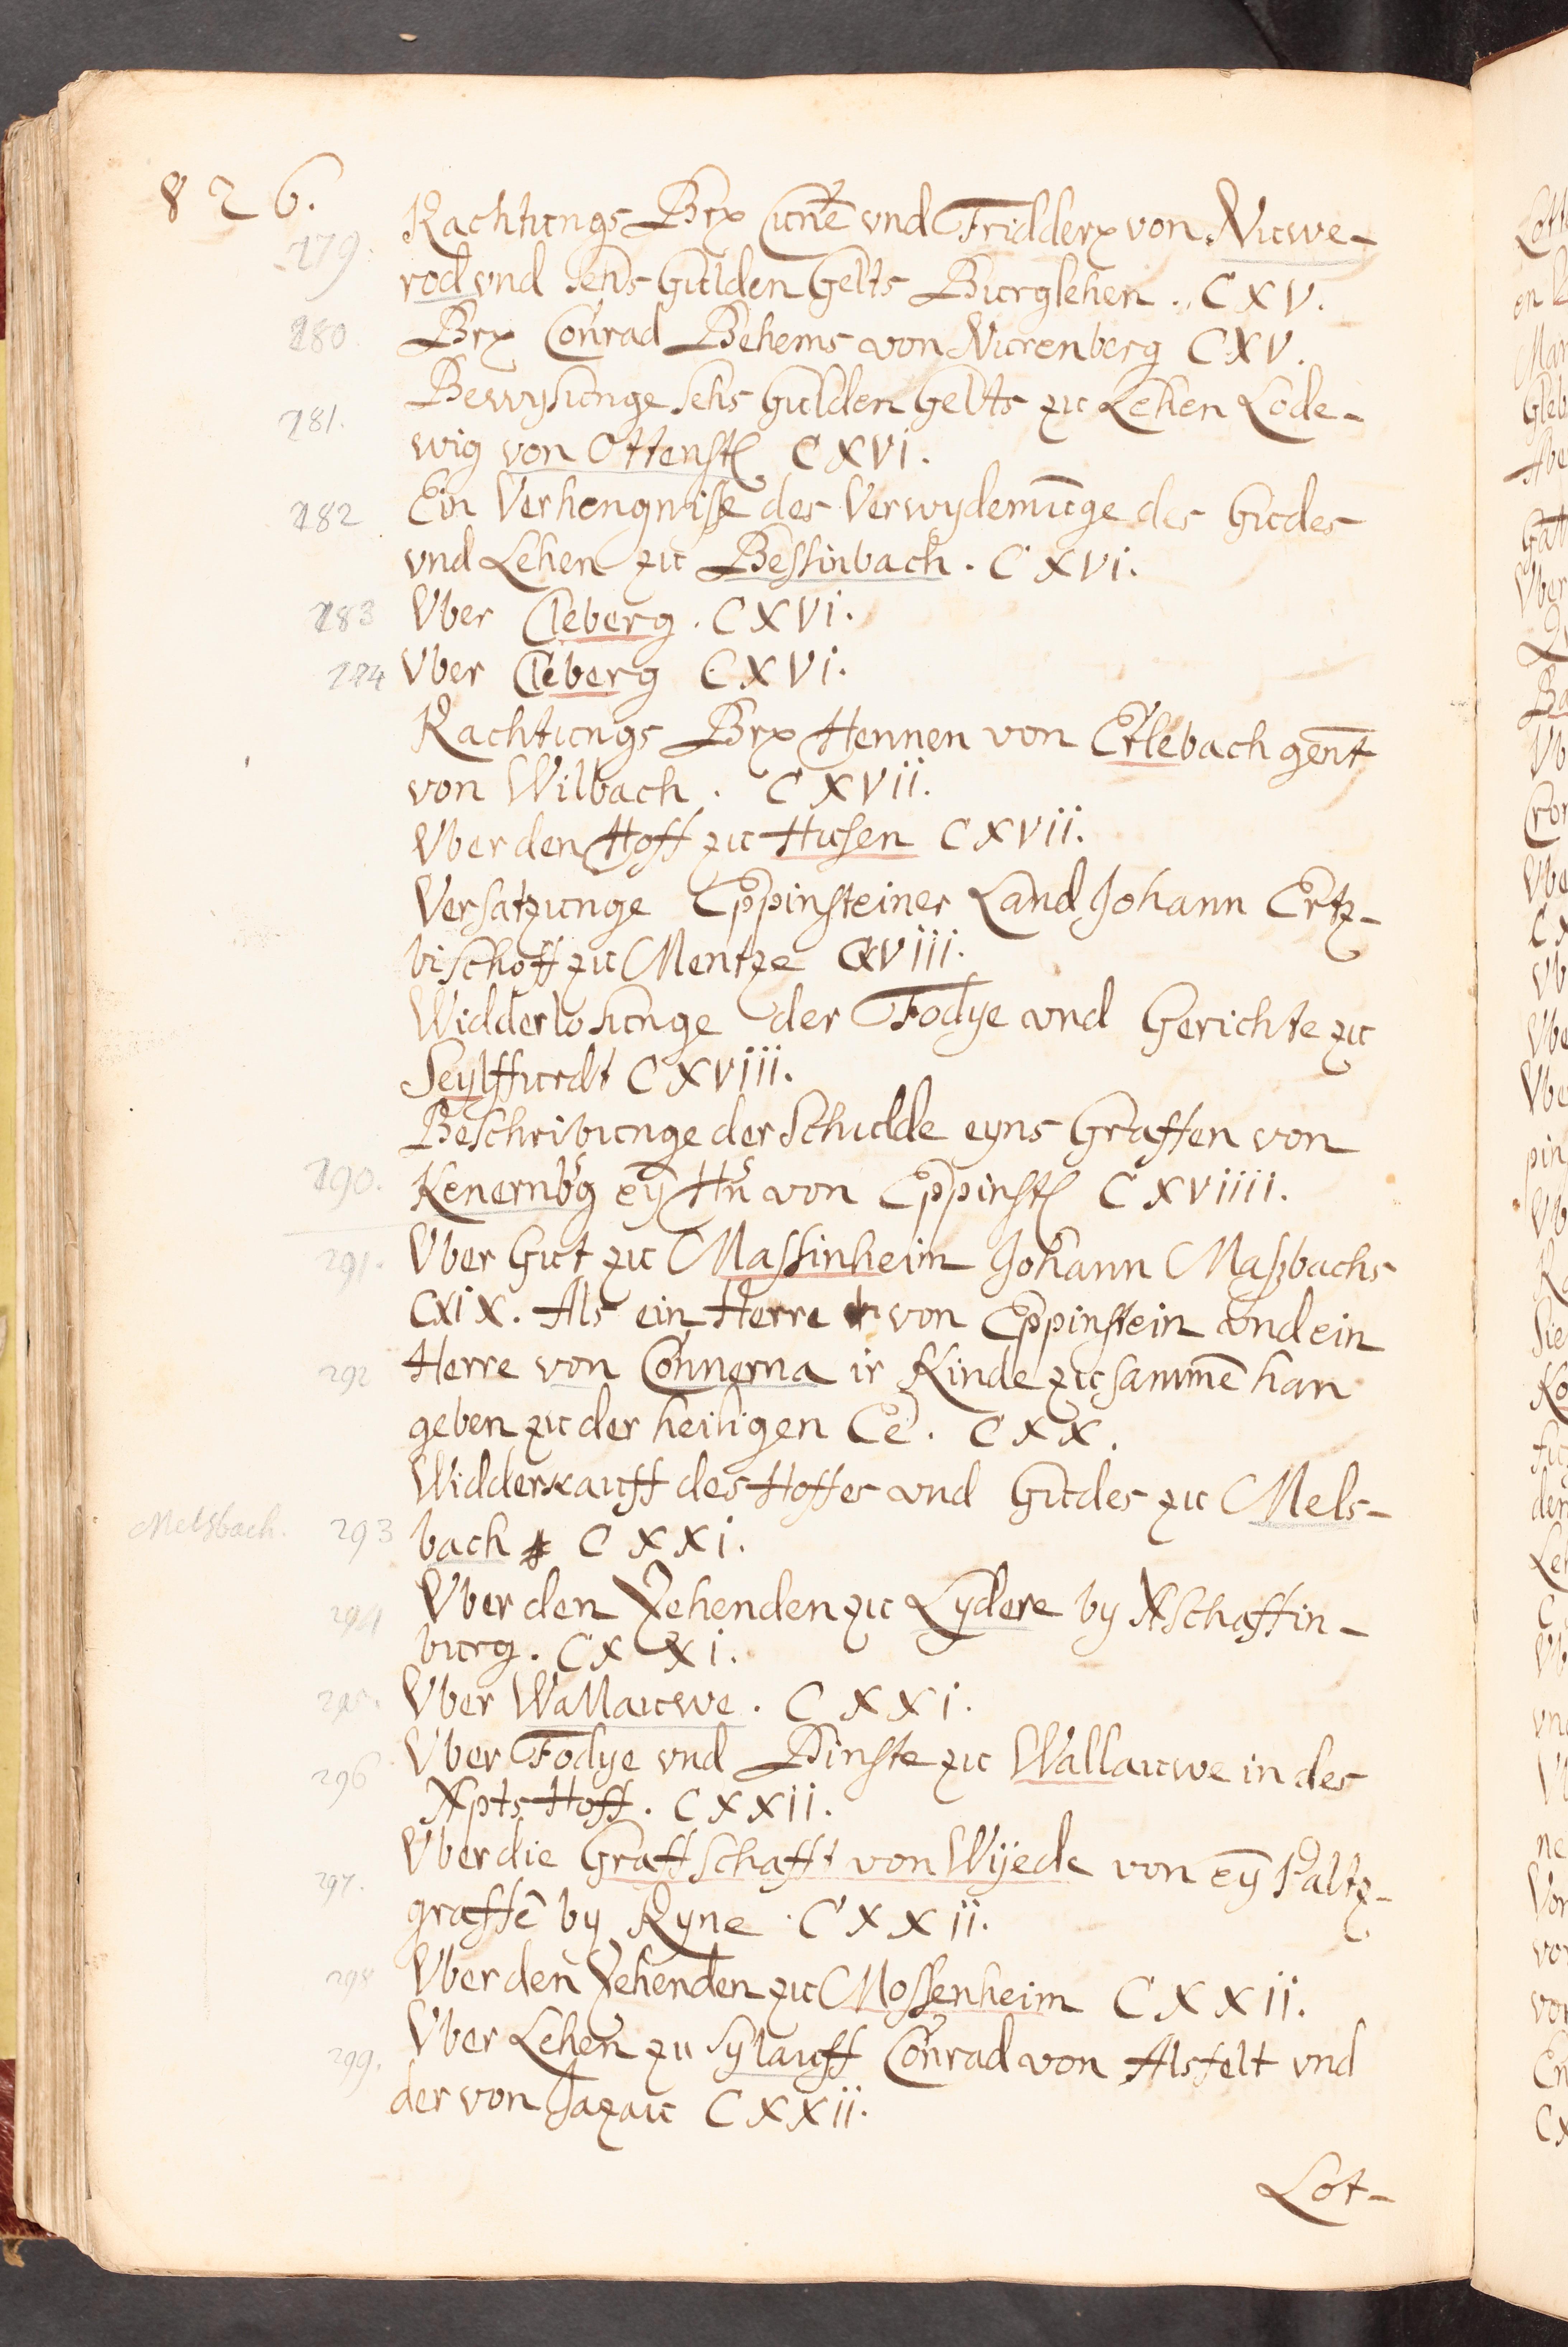 826.
279. Rachtungs Brx Cune vnd Fridderx von Nuwe-
rod vnd sehs Gulden Gelts Burglehen. CXV.
280. Brx Conrad Behems von Nurenberg CXV.
Bewysunge sehs Gulden Gelts zu Lehen Lode-
281. wig von Ottenst CXVi.
282 Ein Verhengnisse des Verwydemūge des Gudes
vnd Lehen zu Bessinbach. CXVi.
283 Vber Cleberg. CXVi.
284 Vber Cleberg CXVi.
Rachtungs Brx Hennen von Erlebach gent
von Wilbach. CXVii.
Vber den Hoff zu Husen CXVii.
Versatzunge Eppinsteiner Land Johann Ertz-
bischoff zu Mentze CXViii.
Widderlosunge der Fodye vnd Gerichte zu
Seylffurdt CXViii.
Beschribunge der Schulde eyns Graffen von
290. Kenernbg ey Hn von Eppinst CXViiii.
291. Vber Gut zu Massinheim Johann Maßbachs
CXiX. Als ein Herre von Eppinstein vnd ein
292 Herre von Connerna ir Kinde zusammē han
geben zu der heiligen Ee. CXX.
Widderkauff des Hoffes vnd Gudes zu Mels-
Melsbach. 293 bach CXXi.
294 Vber den Zehenden zu Lydere by Aschaffin-
burg. CXXi.
295. Vber Wallauwe. CXXi.
Vber Fodye vnd Dinste zu Wallauwe in des
296 Apts Hoff. CXXii.
Vber die Graffschafft von Wijede von eȳ Paltz-
297. graffē by Ryne. CXXii.
298 Vber den Zehenden zu Mossenheim CXXii.
Vber Lehen zu Sylauff Conrad von Alsfelt vnd
299. der von Jazau CXXii.
Lot-